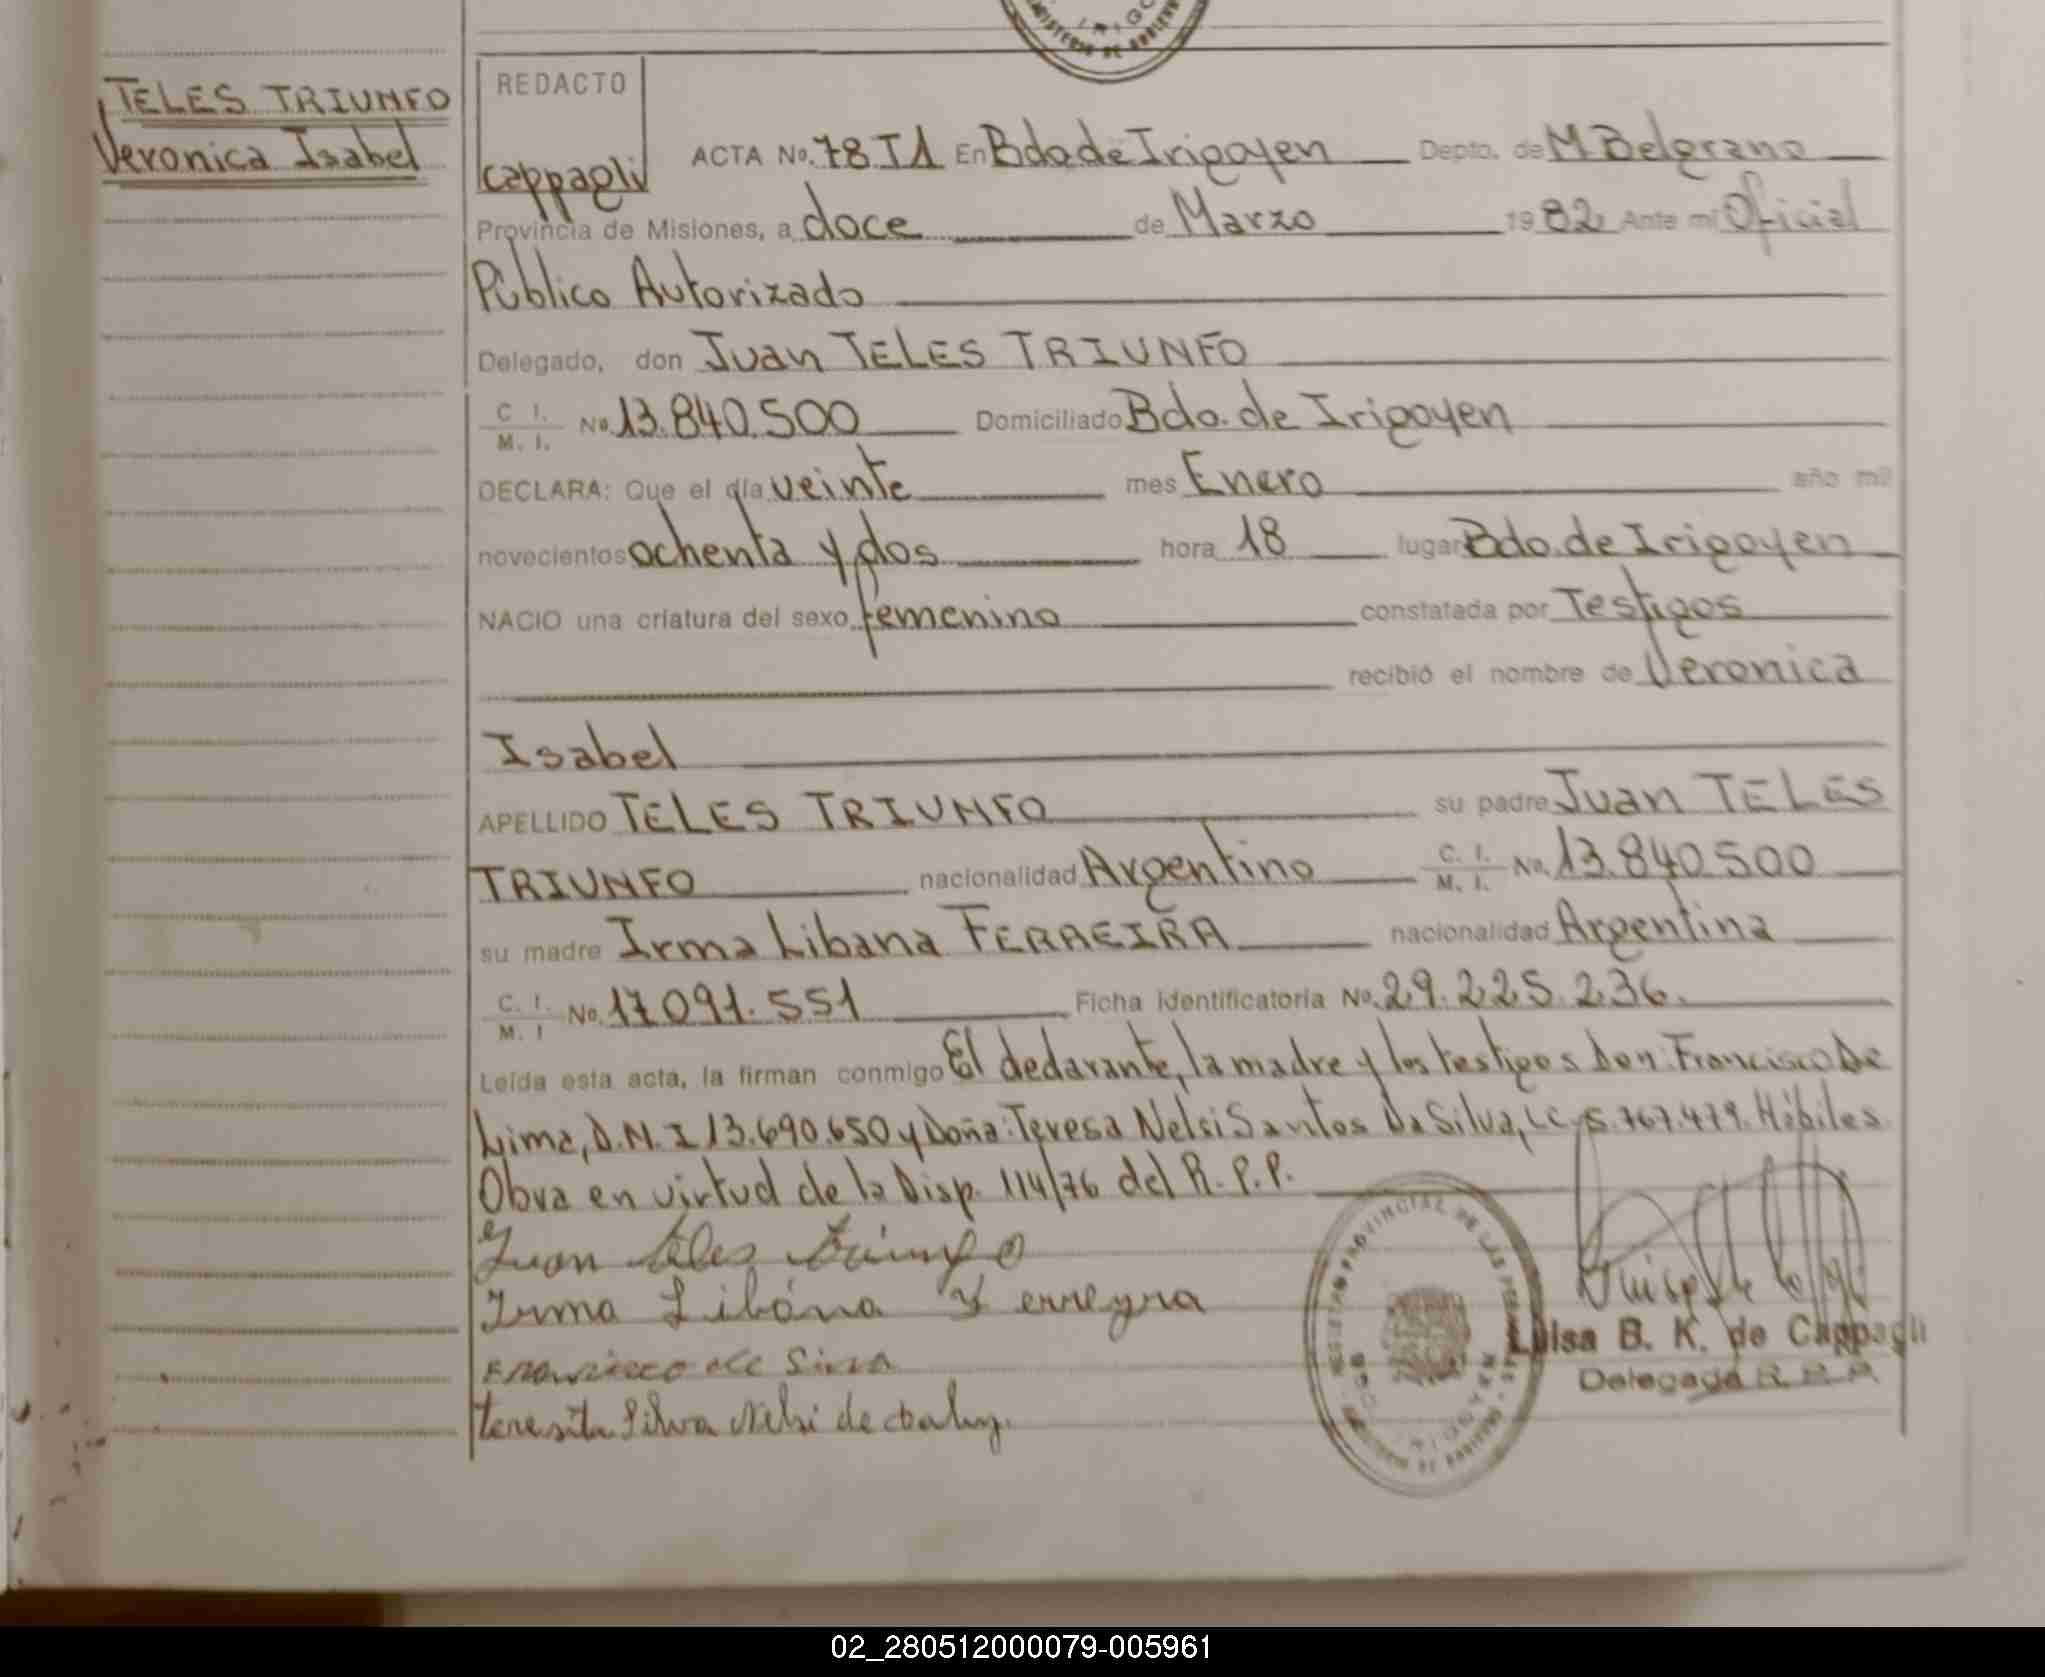 TELES TRIUNFO
Veronica Isabel
REDACTO
cappagli
ACTA No. 78 T1 En Bdo de Irigoyen Depto. de M Belgrano
Provincia de Misiones, a doce de Marzo 1982 Ante mi Oficial
Público Autorizado
Delegado, don Juan TELES TRIUNFO
C. I. / M. I. No. 13.840.500 Domiciliado Bdo. de Irigoyen
DECLARA: Que el día veinte mes Enero año mil
novecientos ochenta y dos hora 18 lugar Bdo. de Irigoyen
NACIO una criatura del sexo femenino constatada por Testigos
recibió el nombre de Veronica
Isabel
APELLIDO TELES TRIUNFO su padre Juan TELES
TRIUNFO nacionalidad Argentino C. I. / M. I. No. 13.840.500
su madre Irma Libana FERREIRA nacionalidad Argentina
C. I. / M. I No. 17.091.551 Ficha identificatoria No. 29.225.236.
Leída esta acta, la firman conmigo El declarante, la madre y los testigos Don: Francisco De
Lima, D.N.I 13.690.650 y Doña: Teresa Nelsi Santos Da Silva, LC 5.767.479. Hábiles
Obra en virtud de la Disp. 114/76 del R.P.P.
Juan Teles Triunfo
Irma Libána Ferreyra
Francisco de
teresita Silva Nelsi de
REGISTRO PROVINCIAL DE LAS PERSONAS
Luisa B. K. de Cappagli
Delegada R.P.P.
02_280512000079-005961